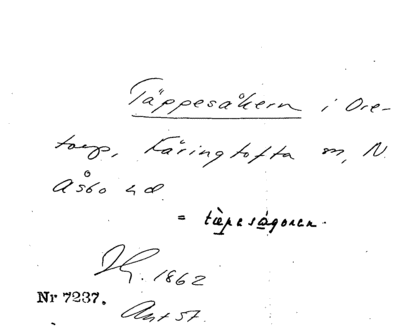 Täppesåkern i Ore-
torp, Käringtofta sn, N.
Åsbo hd
= tæpesågoren.
1862
Nr 7237.
Ant st.